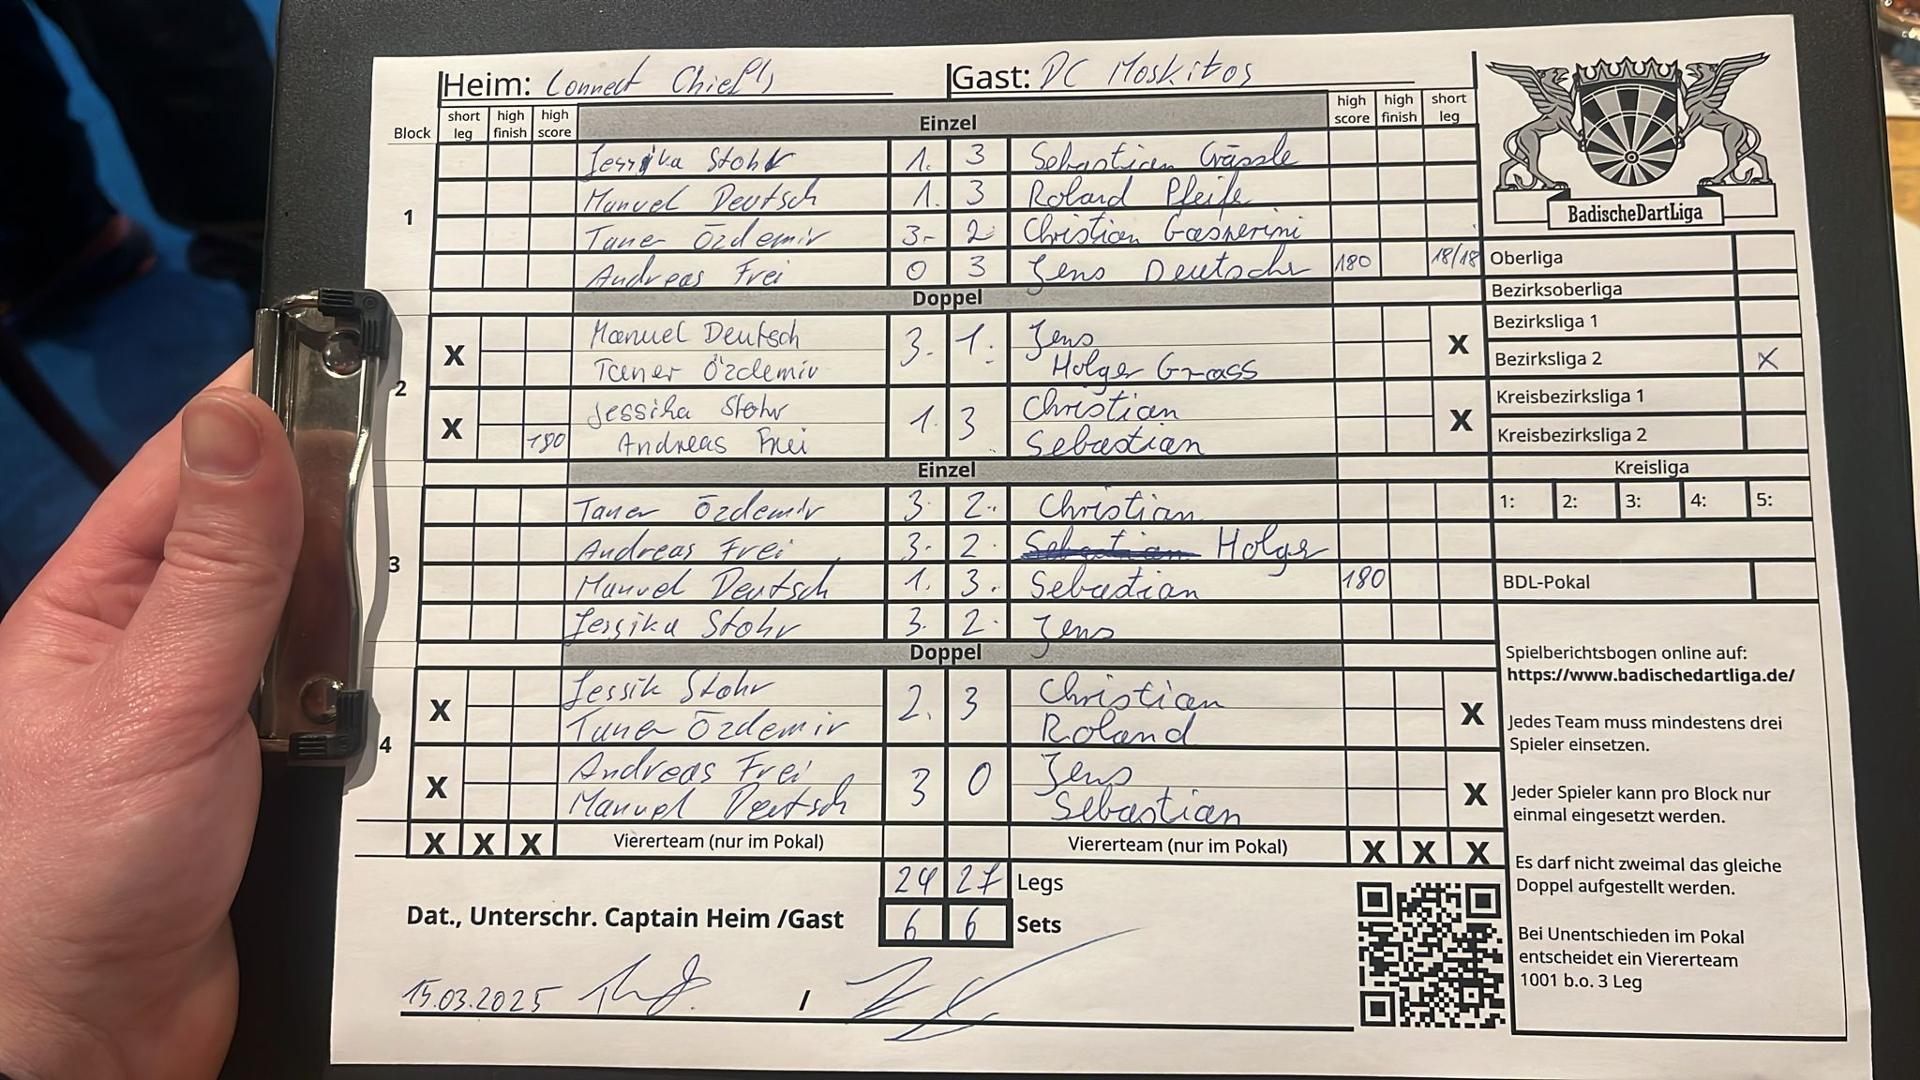 Heim: Connect Chiefs Gast: DC Moskitos
Block short leg high finish high score Einzel high score high finish short leg
1
Jessika Stohr 1. 3 Sebastian Grässle
Manuel Deutsch 1. 3 Roland Pfeife
Taner Özdemir 3- 2 Christian Gasperini
Andreas Frei 0 3 Jens Deutschr 180 18/18
Doppel
2
X Manuel Deutsch 3. 1. Jens X
Taner Özdemir Holger Grass
X Jessika Stohr 1. 3 Christian X
180 Andreas Frei Sebastian
Einzel
3
Taner Özdemir 3. 2. Christian
Andreas Frei 3. 2. Sebastian Holger
Manuel Deutsch 1. 3. Sebastian 180
Jessika Stohr 3. 2. Jens
Doppel
4
X Jessik Stohr 2. 3 Christian X
Taner Özdemir Roland
X Andreas Frei 3 0 Jens X
Manuel Deutsch Sebastian
X X X Viererteam (nur im Pokal) Viererteam (nur im Pokal) X X X
24 27 Legs
Dat., Unterschr. Captain Heim /Gast 6 6 Sets
15.03.2025 /
BadischeDartLiga
Oberliga
Bezirksoberliga
Bezirksliga 1
Bezirksliga 2 X
Kreisbezirksliga 1
Kreisbezirksliga 2
Kreisliga
1: 2: 3: 4: 5:
BDL-Pokal
Spielberichtsbogen online auf:
https://www.badischedartliga.de/
Jedes Team muss mindestens drei
Spieler einsetzen.
Jeder Spieler kann pro Block nur
einmal eingesetzt werden.
Es darf nicht zweimal das gleiche
Doppel aufgestellt werden.
Bei Unentschieden im Pokal
entscheidet ein Viererteam
1001 b.o. 3 Leg